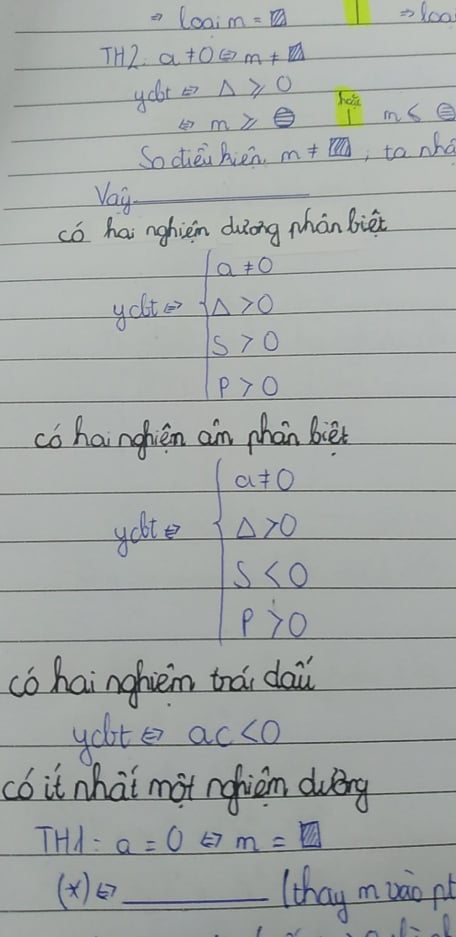 ⇒ loại m = ▨ | ⇒ loại
TH2: a ≠ 0 ⇔ m ≠ ▨
ycbt ⇔ Δ ≥ 0
⇔ m ≥ ⊖ hoặc | m ≤ ⊖
So điều kiện m ≠ ▨, ta nhậ
Vậy
có hai nghiệm dương phân biệt
a ≠ 0
ycbt ⇔ { Δ > 0
S > 0
P > 0
có hai nghiệm âm phân biệt
a ≠ 0
ycbt ⇔ { Δ > 0
S < 0
P > 0
có hai nghiệm trái dấu
ycbt ⇔ ac < 0
có ít nhất một nghiệm dương
TH1: a = 0 ⇔ m = ▨
(*) ⇔ ________ (thay m vào pt